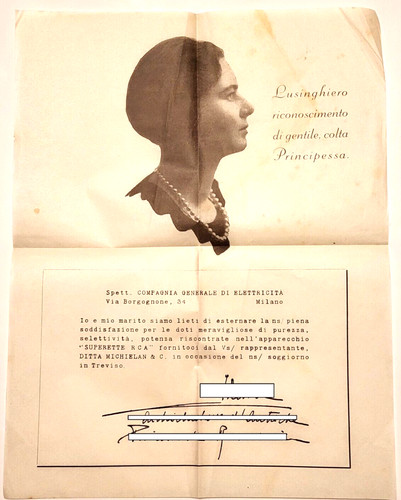 Lusinghiero
riconoscimento
di gentile, colta
Principessa.
Spett. COMPAGNIA GENERALE DI ELETTRICITÀ
Via Borgognone, 34 Milano
Io e mio marito siamo lieti di esternare la ns/ piena
soddisfazione per le doti meravigliose di purezza,
selettività, potenza riscontrate nell'apparecchio
"SUPERETTE RCA" fornitoci dal Vs/ rappresentante,
DITTA MICHIELAN & C. in occasione del ns/ soggiorno
in Treviso.